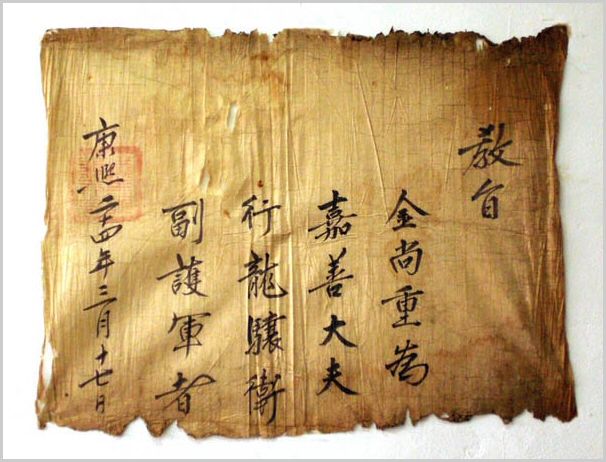 教旨
金尚重為
嘉善大夫
行龍驤衛
副護軍者
康熙二十四年三月十七日